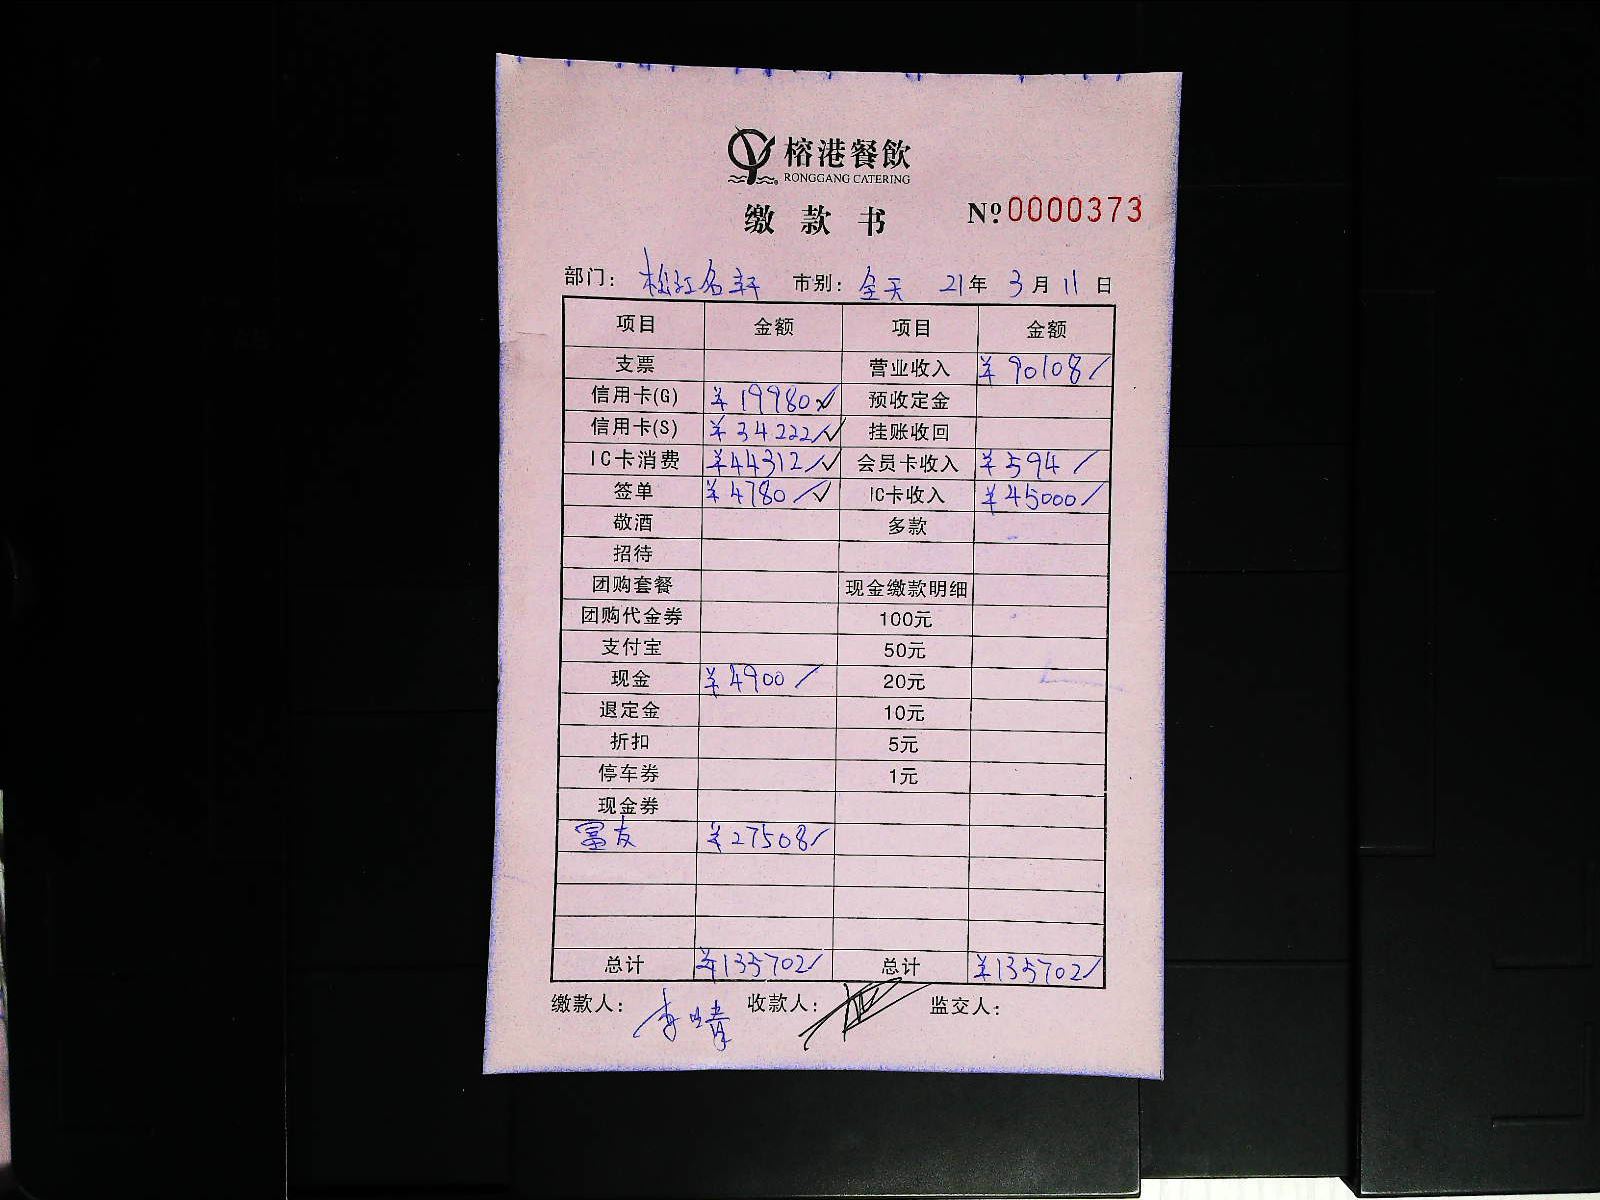 榕港餐飲
RONGGANG CATERING
缴款书 №0000373
部门: 松江名轩 市别: 全天 21年 3月 11日
项目 金额 项目 金额
支票 营业收入 ¥90108/
信用卡(G) ¥19980 ✓ 预收定金
信用卡(S) ¥34222/✓ 挂账收回
IC卡消费 ¥44312/✓ 会员卡收入 ¥594/
签单 ¥4780/✓ IC卡收入 ¥45000/
敬酒 多款
招待
团购套餐 现金缴款明细
团购代金券 100元
支付宝 50元
现金 ¥4900/ 20元
退定金 10元
折扣 5元
停车券 1元
现金券
富友 ¥27508/
总计 ¥135702/ 总计 ¥135702/
缴款人: 李晴 收款人: 监交人: